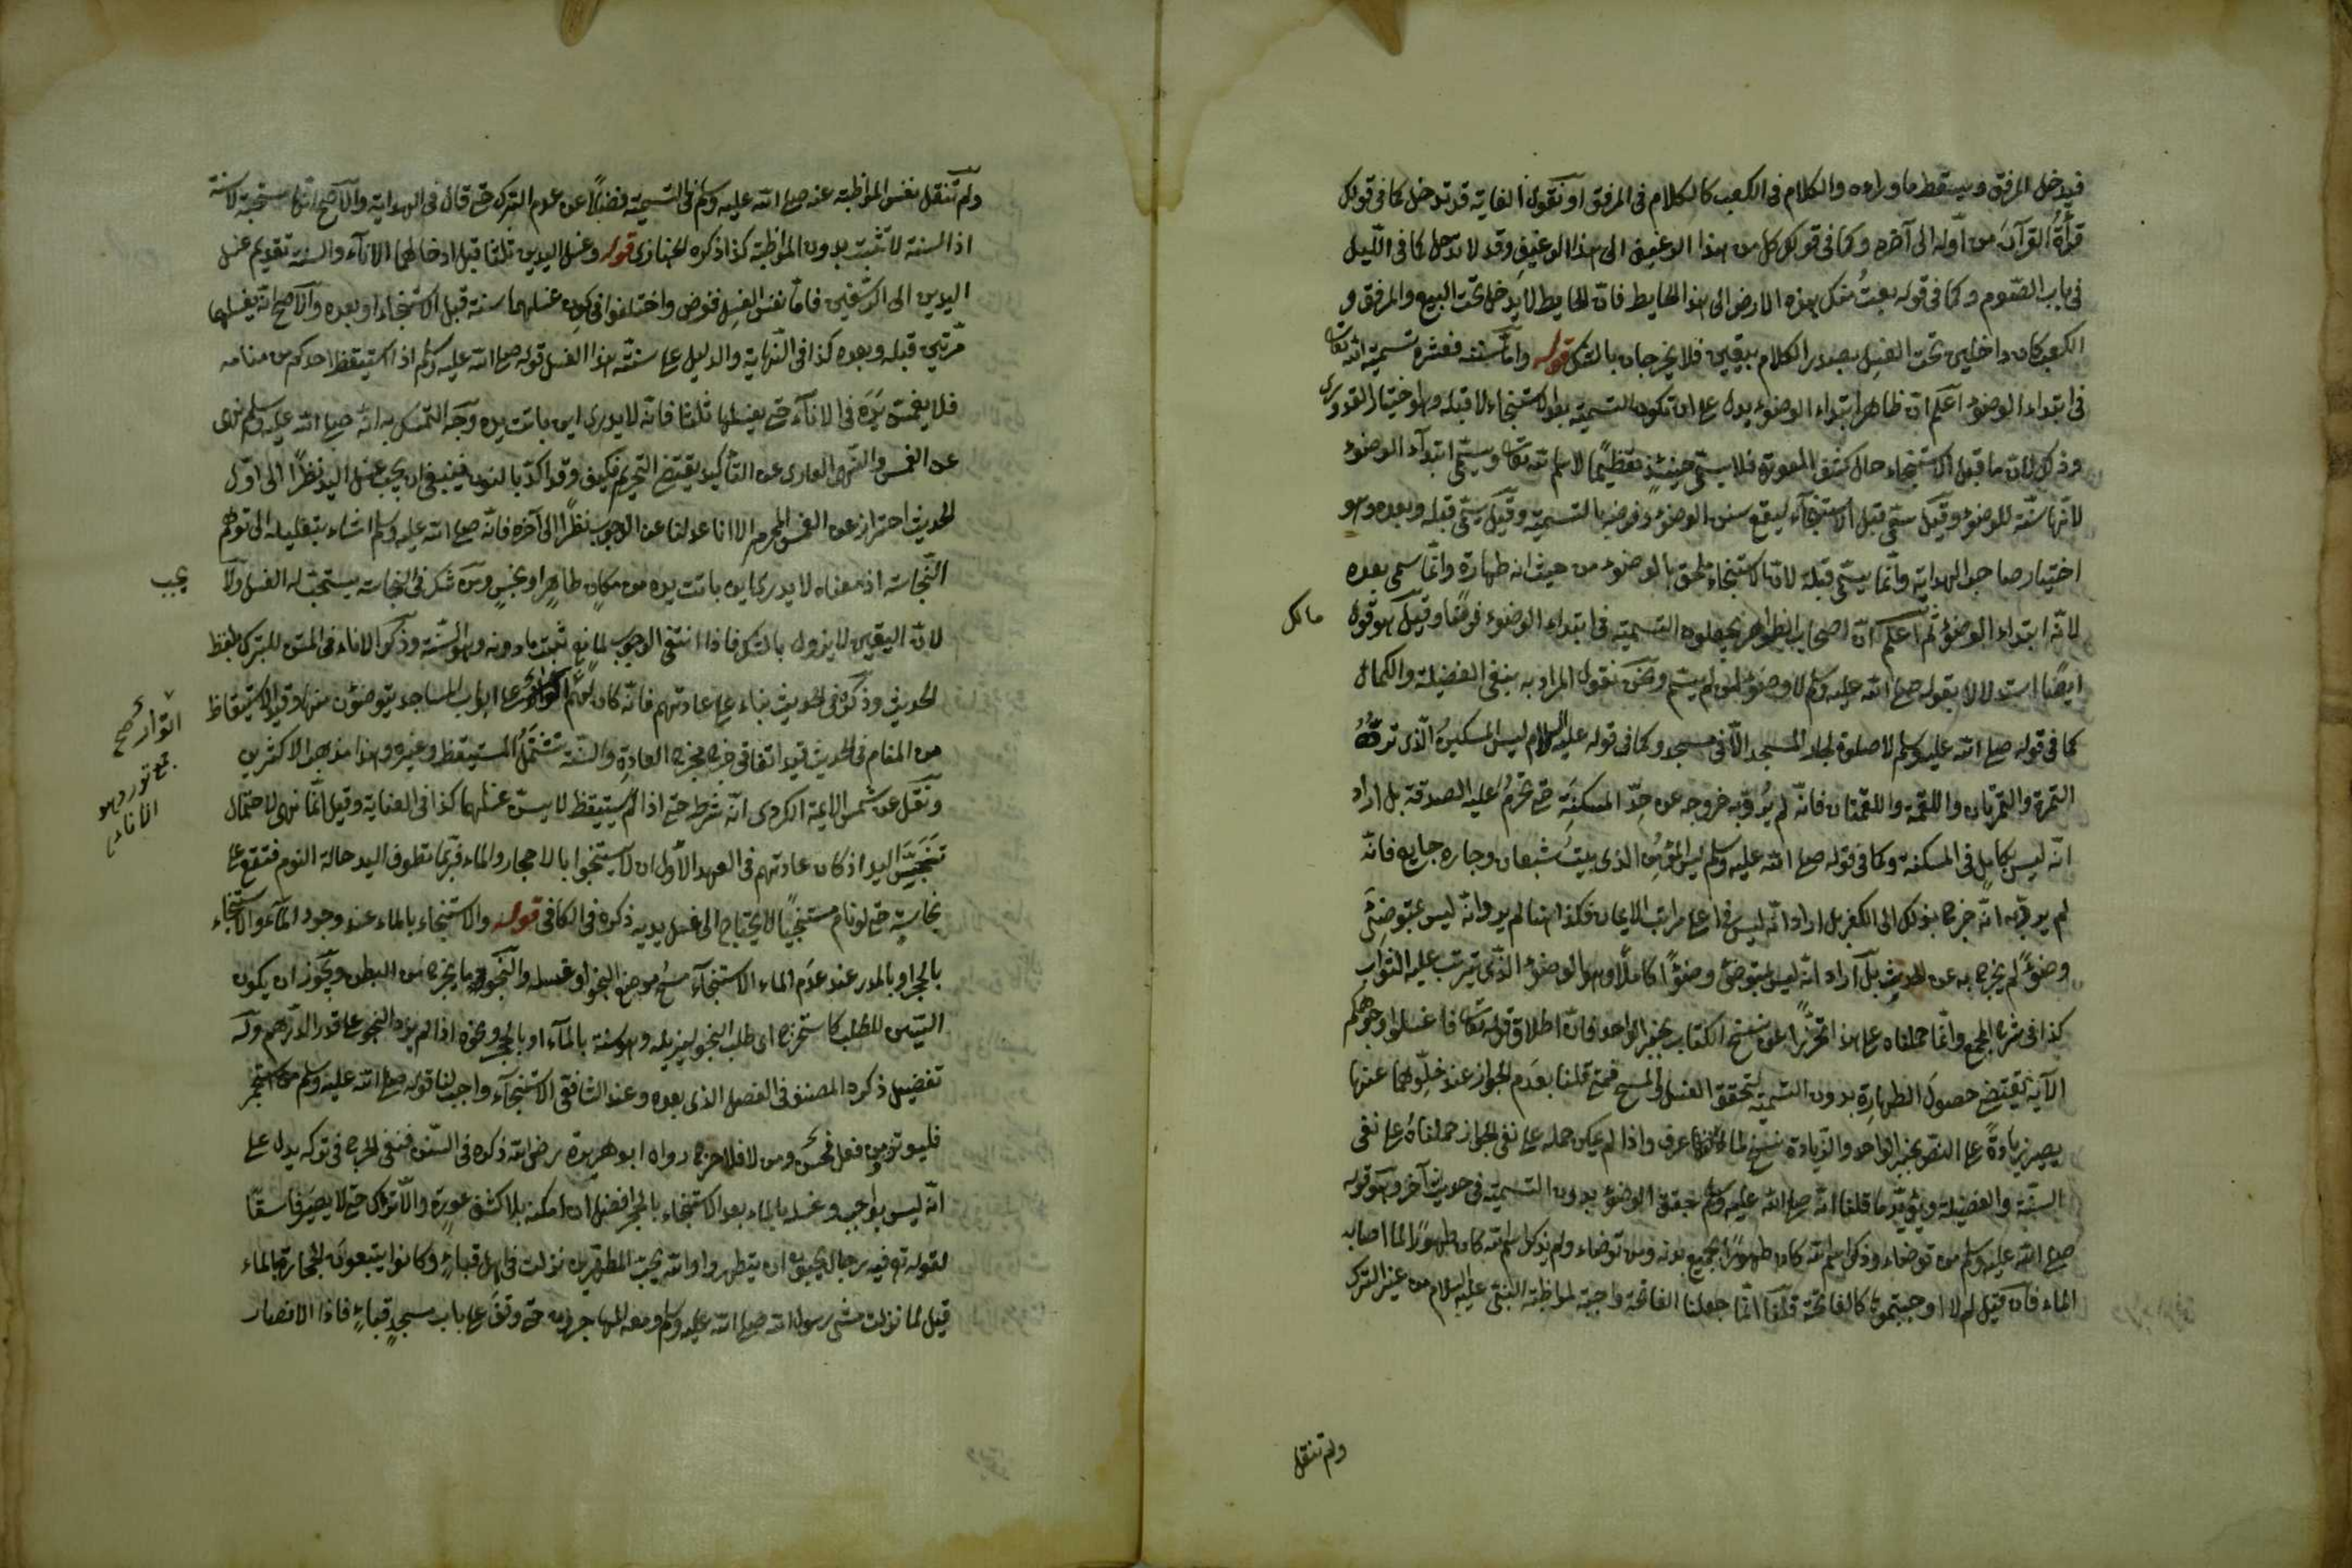 فيدخل المرفق ويسقط ما وراءه والكلام في الكعب كالكلام في المرفق او نقول الغاية قد تدخل كما في قولك
قرأتُ القرآن من اوله الى آخره وكما في قولك كل من هذا الرغيف الى هذا الرغيف وقد لا تدخل كما في الليل
في باب الصوم وكما في قوله بعتُ منك هذه الارض الى هذا الحايط فان الحايط لا يدخل تحت البيع والمرفق و
الكعب كان داخلين تحت الغسل بصدر الكلام بيقين فلا يخرجان بالشك قوله واما سننه فعشرة تسمية الله تعالى
في ابتداء الوضوء اعلم ان ظاهر ابتداء الوضوء يدل على ان تكون التسمية بعد الاستنجاء لا قبله وهو اختيار القدوري
وذلك لان ما قبل الاستنجاء حال كشف العورة فلا يسمى حينئذ تعظيمًا لاسم الله تعالى ويسمى ابتداء الوضوء
لانها سنة للوضوء وقيل يسمى قبل الاستنجاء ليقع سنن الوضوء وفرضه بالتسمية وقيل يسمى قبله وبعده وهو
اختيار صاحب الهداية وانما يسمى قبله لان الاستنجاء ملحق بالوضوء من حيث انه طهارة وانما سمى بعده
لانه ابتداء الوضوء ثم اعلم ان اصحاب الظواهر يجعلون التسمية في ابتداء الوضوء فرضًا وقيل هو قول
مالك
ايضًا استدلالا بقوله صلى الله عليه وسلم لا وضوء لمن لم يسم ونحن نقول المراد به ينفي الفضيلة والكمال
كما في قوله صلى الله عليه وسلم لا صلوة لجار المسجد الا في مسجد وكما في قوله عليه السلام ليس المسكين الذي تردّهُ
التمرة والتمرتان واللقمة واللقمتان فانه لم يُرد به خروجه عن حدّ المسكنة حتى تحرمُ عليه الصدقة بل اراد
انه ليس بكامل في المسكنة وكما في قوله صلى الله عليه وسلم ليس المؤمن الذي يبيتُ شبعان وجاره جايع فانه
لم يرد به انه خرج بذلك الى الكفر بل اراد انه ليس في اعلى مراتب الايمان فكذا هنا لم يرد انه ليس بمتوضئ
وضوءً لم يخرج به عن الحدث بل اراد انه ليس بمتوضئ وضوءًا كاملًا وهو الوضوء الذي يترتب عليه الثواب
كذا في شرح المجمع وانما حملناه على هذا تحرزًا عن نسخ الكتاب بخبر الواحد فان اطلاق قوله تعالى فاغسلوا وجوهكم
الآية يقتضي حصول الطهارة بدون التسمية لتحقق الغسل والمسح فمتى قلنا بعدم الجواز عند خلوّهما عنها
يصير زيادةً على النص بخبر الواحد والزيادة نسخ لما عرف واذا لم يمكن حمله على نفي الجواز حملناهُ على نفي
السنة والفضيلة ويؤيد ما قلنا انه صلى الله عليه وسلم حقق الوضوء بدون التسمية في حديث آخر وهو قوله
صلى الله عليه وسلم من توضاء وذكر اسم الله كان طهورًا لجميع بدنه ومن توضاء ولم يذكر اسم الله كان طهورًا لما اصابه
الماء فان قيل لم لا اوجبتموها كالفاتحة قلنا انما جعلنا الفاتحة واجبة لمواظبة النبي عليه السلام من غير الترك
ولم تنقل
ولم تنقل نفس المواظبة عنه صلى الله عليه وسلم في التسمية فضلًا عن عدم الترك حتى قال في الهداية والاصح انها مستحبة لا سنة
اذ السنة لا تثبت بدون المواظبة كذا ذكره الخبازي قوله وغسل اليدين ثلثا قبل ادخالهما الاناء والسنة تقديم غسل
اليدين الى الرسغين فاما نفس الغسل ففرض واختلفوا في كون غسلهما سنة قبل الاستنجاء او بعده والاصح انه يغسلها
مرتين قبله وبعده كذا في النهاية والدليل على سنية هذا الغسل قوله صلى الله عليه وسلم اذا استيقظ احدكم من منامه
فلا يغمس يده في الاناء حتى يغسلها ثلثا فانه لا يدري اين باتت يده وجه التمسك به انه صلى الله عليه وسلم نهى
عن الغمس والنهي العاري عن التأكيد يقتضي التحريم فكيف وقد اكد بالنون فينبغي ان يجب غسل اليد نظرًا الى اول
الحديث احترازا عن الغمس المحرم الا انا عدلنا عن الوجوب نظرًا الى آخره فانه صلى الله عليه وسلم اشاء بتعليله الى توهم
النجاسة اذ معناه لا يدري اين باتت يده من مكان طاهر او نجس ومن شك في النجاسة يستحب له الغسل ولا
يجب
لان اليقين لا يزول بالشك فاذا انتفى الوجوب لمانع ثبت ما دونه وهو السنة وذكر الاناء في المتن للتبرك بلفظ
الحديث وذكره في الحديث بناء على عادتهم فانه كان لهم اتوار على ابواب المساجد يتوضئون منها وقيد الاستيقاظ
اتوار صح
جمع تور وهو
الاناء
من المنام في الحديث قيد اتفاقي خرج مخرج العادة والسنة تشتمل المستيقظ وغيره وهذا مذهب الاكثرين
ونقل عن شمس الايمة الكردري انه شرط حتى اذا لم يستيقظ لا يسن غسلهما كذا في العناية وقيل انما نهى لاحتمال
تنجس اليد اذ كان عادتهم في العهد الاول ان لا يستنجوا بالاحجار والماء فربما تطوف اليد حالة النوم فتقع على
نجاسة حتى لو نام مستنجيًا لا يحتاج الى غسل يديه ذكره في الكافي قوله والاستنجاء بالماء عند وجود الماء والاستنجاء
بالحجر او بالمدر عند عدم الماء الاستنجاء مسح موضع النجو او غسله والنجو ما يخرج من البطن ويجوز ان يكون
السين للطلب كاستخرج اى طلب النجو ليزيله وهو سنة بالماء او بالحجر ونحوه اذا لم يزد النجو على قدر الدرهم وله
تفصيل ذكره المصنف في الفصل الذي بعده وعند الشافعي الاستنجاء واجب لنا قوله صلى الله عليه وسلم من استجمر
فليوتر ومن فعل فحسن ومن لا فلا حرج رواه ابو هريرة رضي الله ذكره في السنن فنفي الحرج في تركه يدل على
انه ليس بواجب وغسله بالماء بعد الاستنجاء بالحجر افضل ان امكنه بلا كشف عورة والا ترك حتى لا يصير فاسقًا
لقوله تع فيه رجال يحبون ان يتطهروا والله يحب المطهرين نزلت في اهل قباء وكانوا يتبعون الحجارة بالماء
قيل لما نزلت مشى رسول الله صلى الله عليه وسلم ومعه المهاجرين حتى وقف على باب مسجد قباء فاذا الانصار